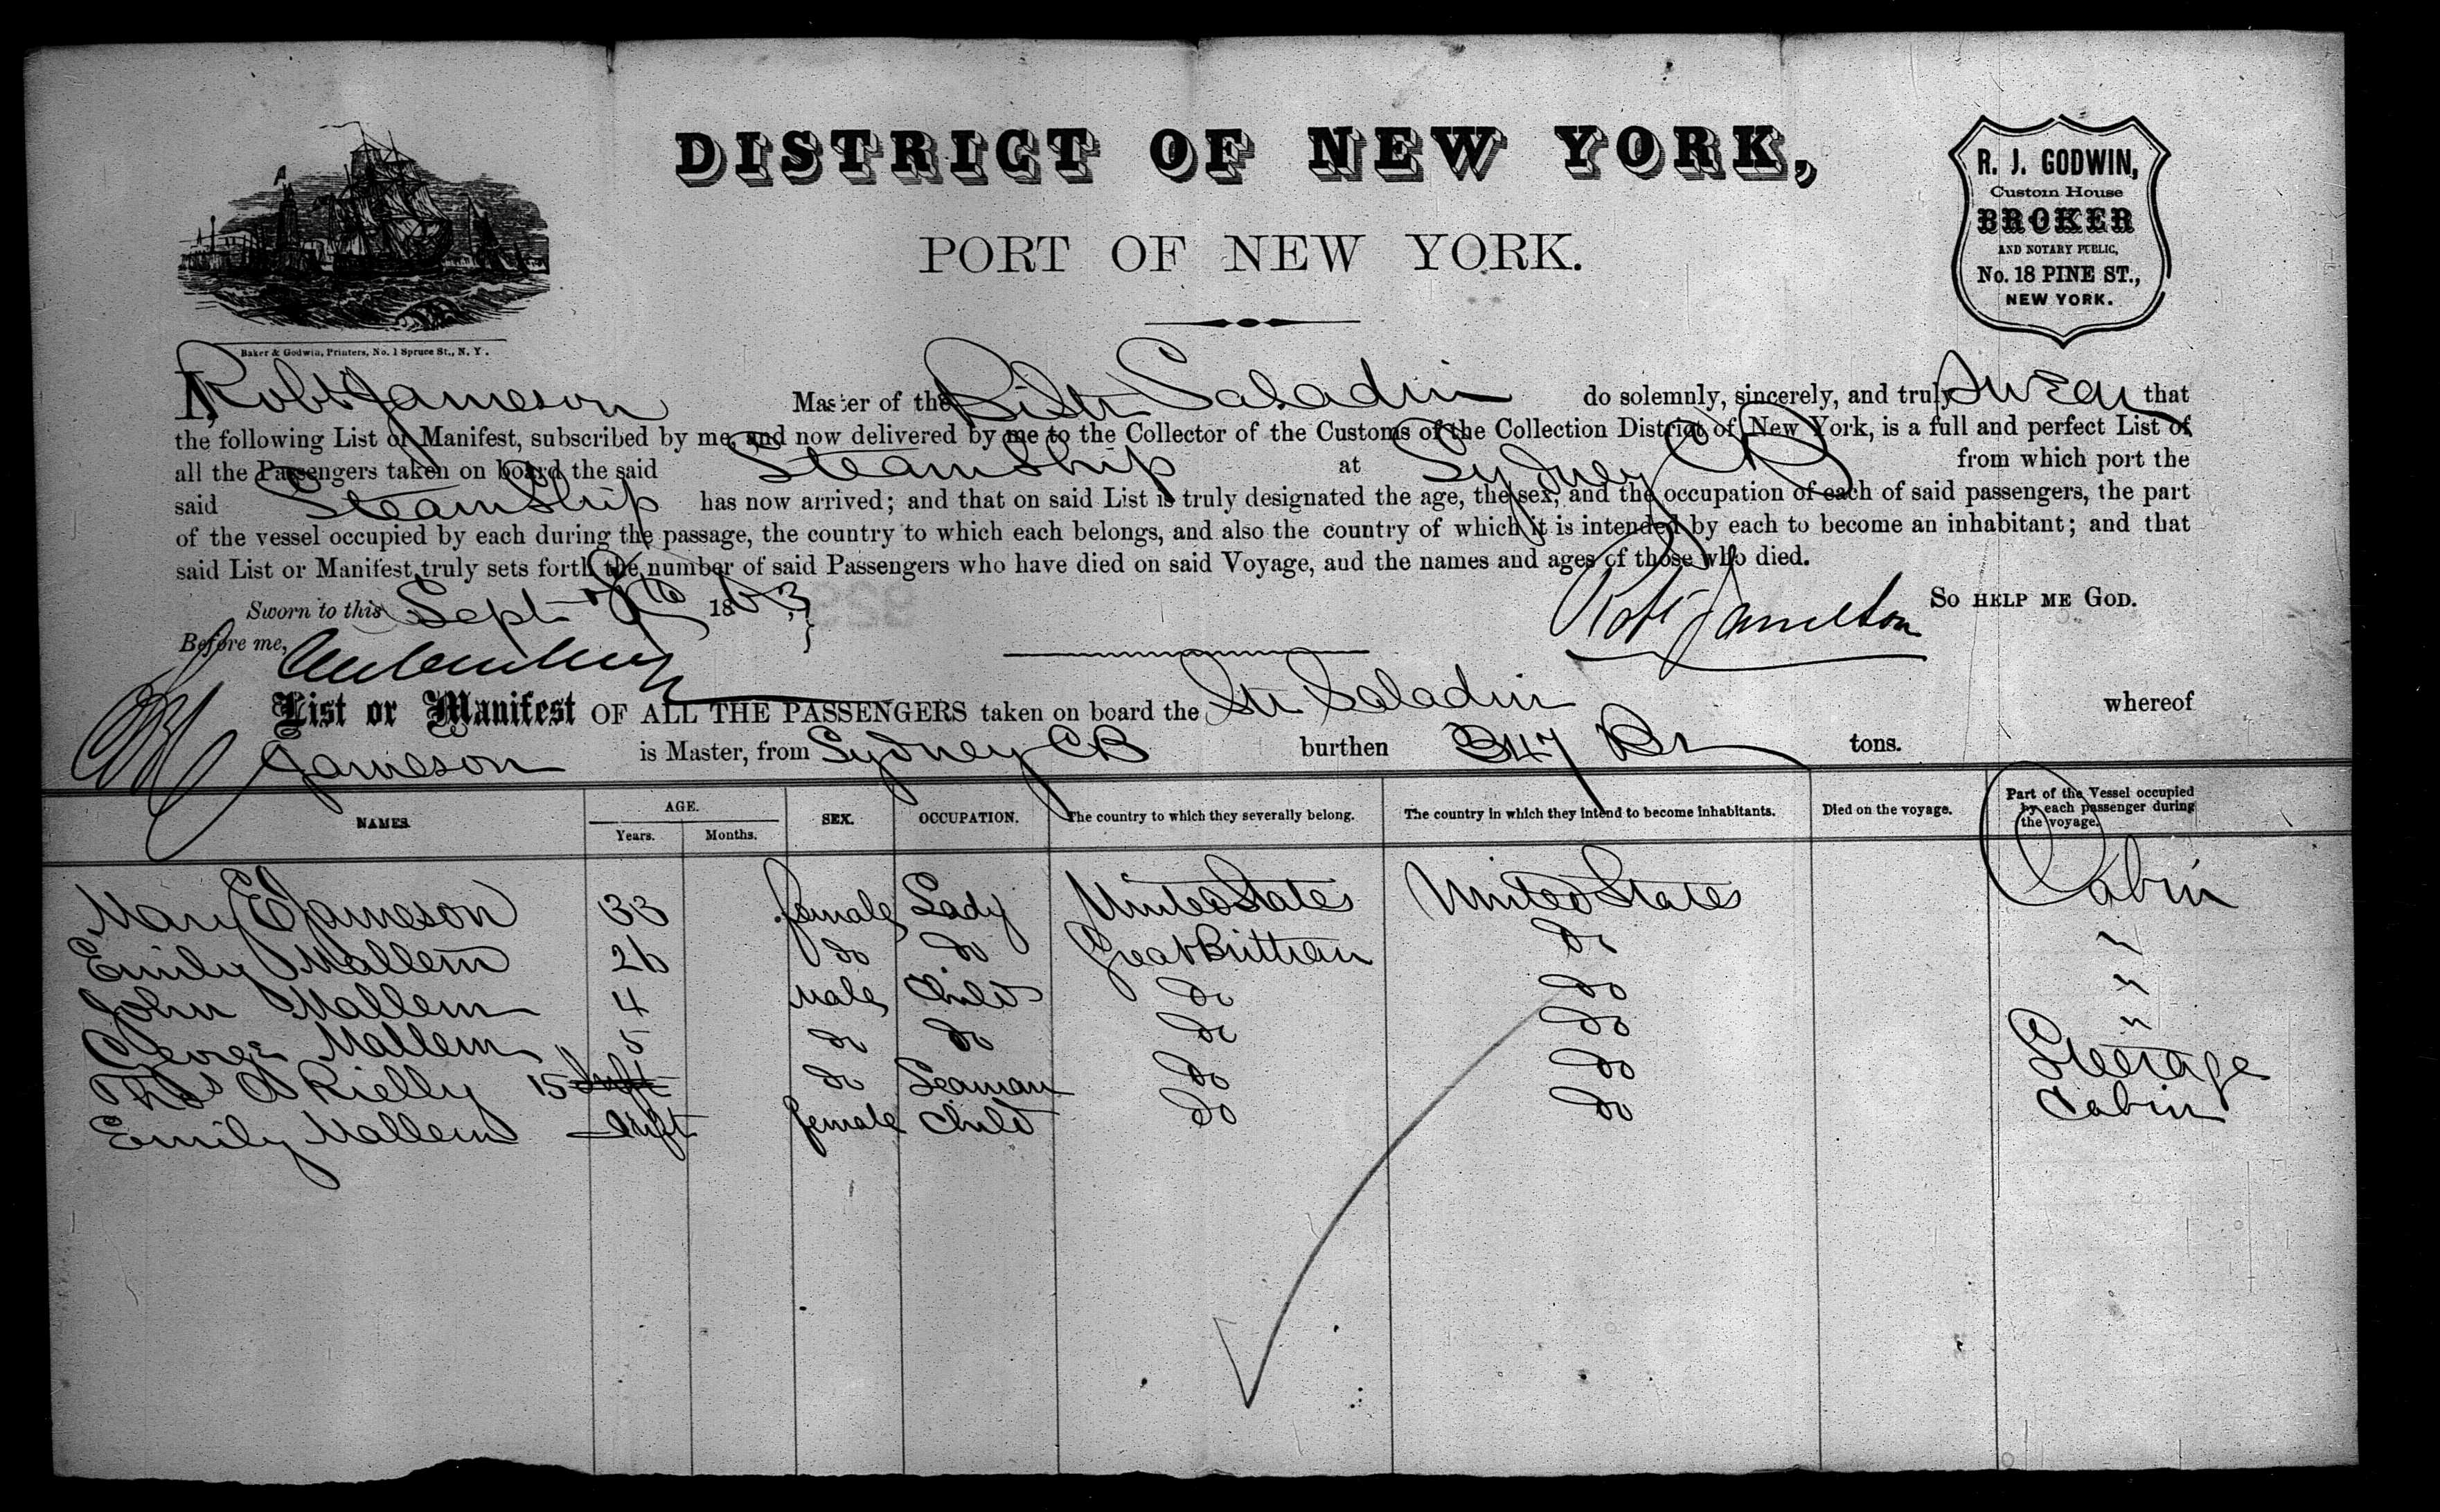 DISTRICT OF NEW YORK,
PORT OF NEW YORK.
R. J. GODWIN,
Custom House
BROKER
AND NOTARY PUBLIC,
No. 18 PINE ST.,
NEW YORK.
Baker & Godwin, Printers, No. 1 Spruce St., N. Y.
I, Robt Jameson Master of the Br Str Saladin do solemnly, sincerely, and truly Swear that
the following List or Manifest, subscribed by me, and now delivered by me to the Collector of the Customs of the Collection District of New York, is a full and perfect List of
all the Passengers taken on board the said Steamship at Sydney CB from which port the
said Steamship has now arrived; and that on said List is truly designated the age, the sex, and the occupation of each of said passengers, the part
of the vessel occupied by each during the passage, the country to which each belongs, and also the country of which it is intended by each to become an inhabitant; and that
said List or Manifest truly sets forth the number of said Passengers who have died on said Voyage, and the names and ages of those who died.
Sworn to this Sept 1863 So HELP ME GOD.
Before me,
List or Manifest OF ALL THE PASSENGERS taken on board the Str Saladin whereof
Jameson is Master, from Sydney CB burthen 347 Br tons.
NAMES AGE. Years. Months. SEX. OCCUPATION. The country to which they severally belong. The country in which they intend to become inhabitants. Died on the voyage. Part of the Vessel occupied by each passenger during the voyage.
Mary E Jameson 33 female Lady United States United States Cabin
Emily Mallem 26 do do Great Brittian do "
John Mallem 4 Male Child do do "
George Mallem 5 do do do do "
Thos A Rielly 15 do Seaman do do Steerage
Emily Mallem Inft female Child do do Cabin